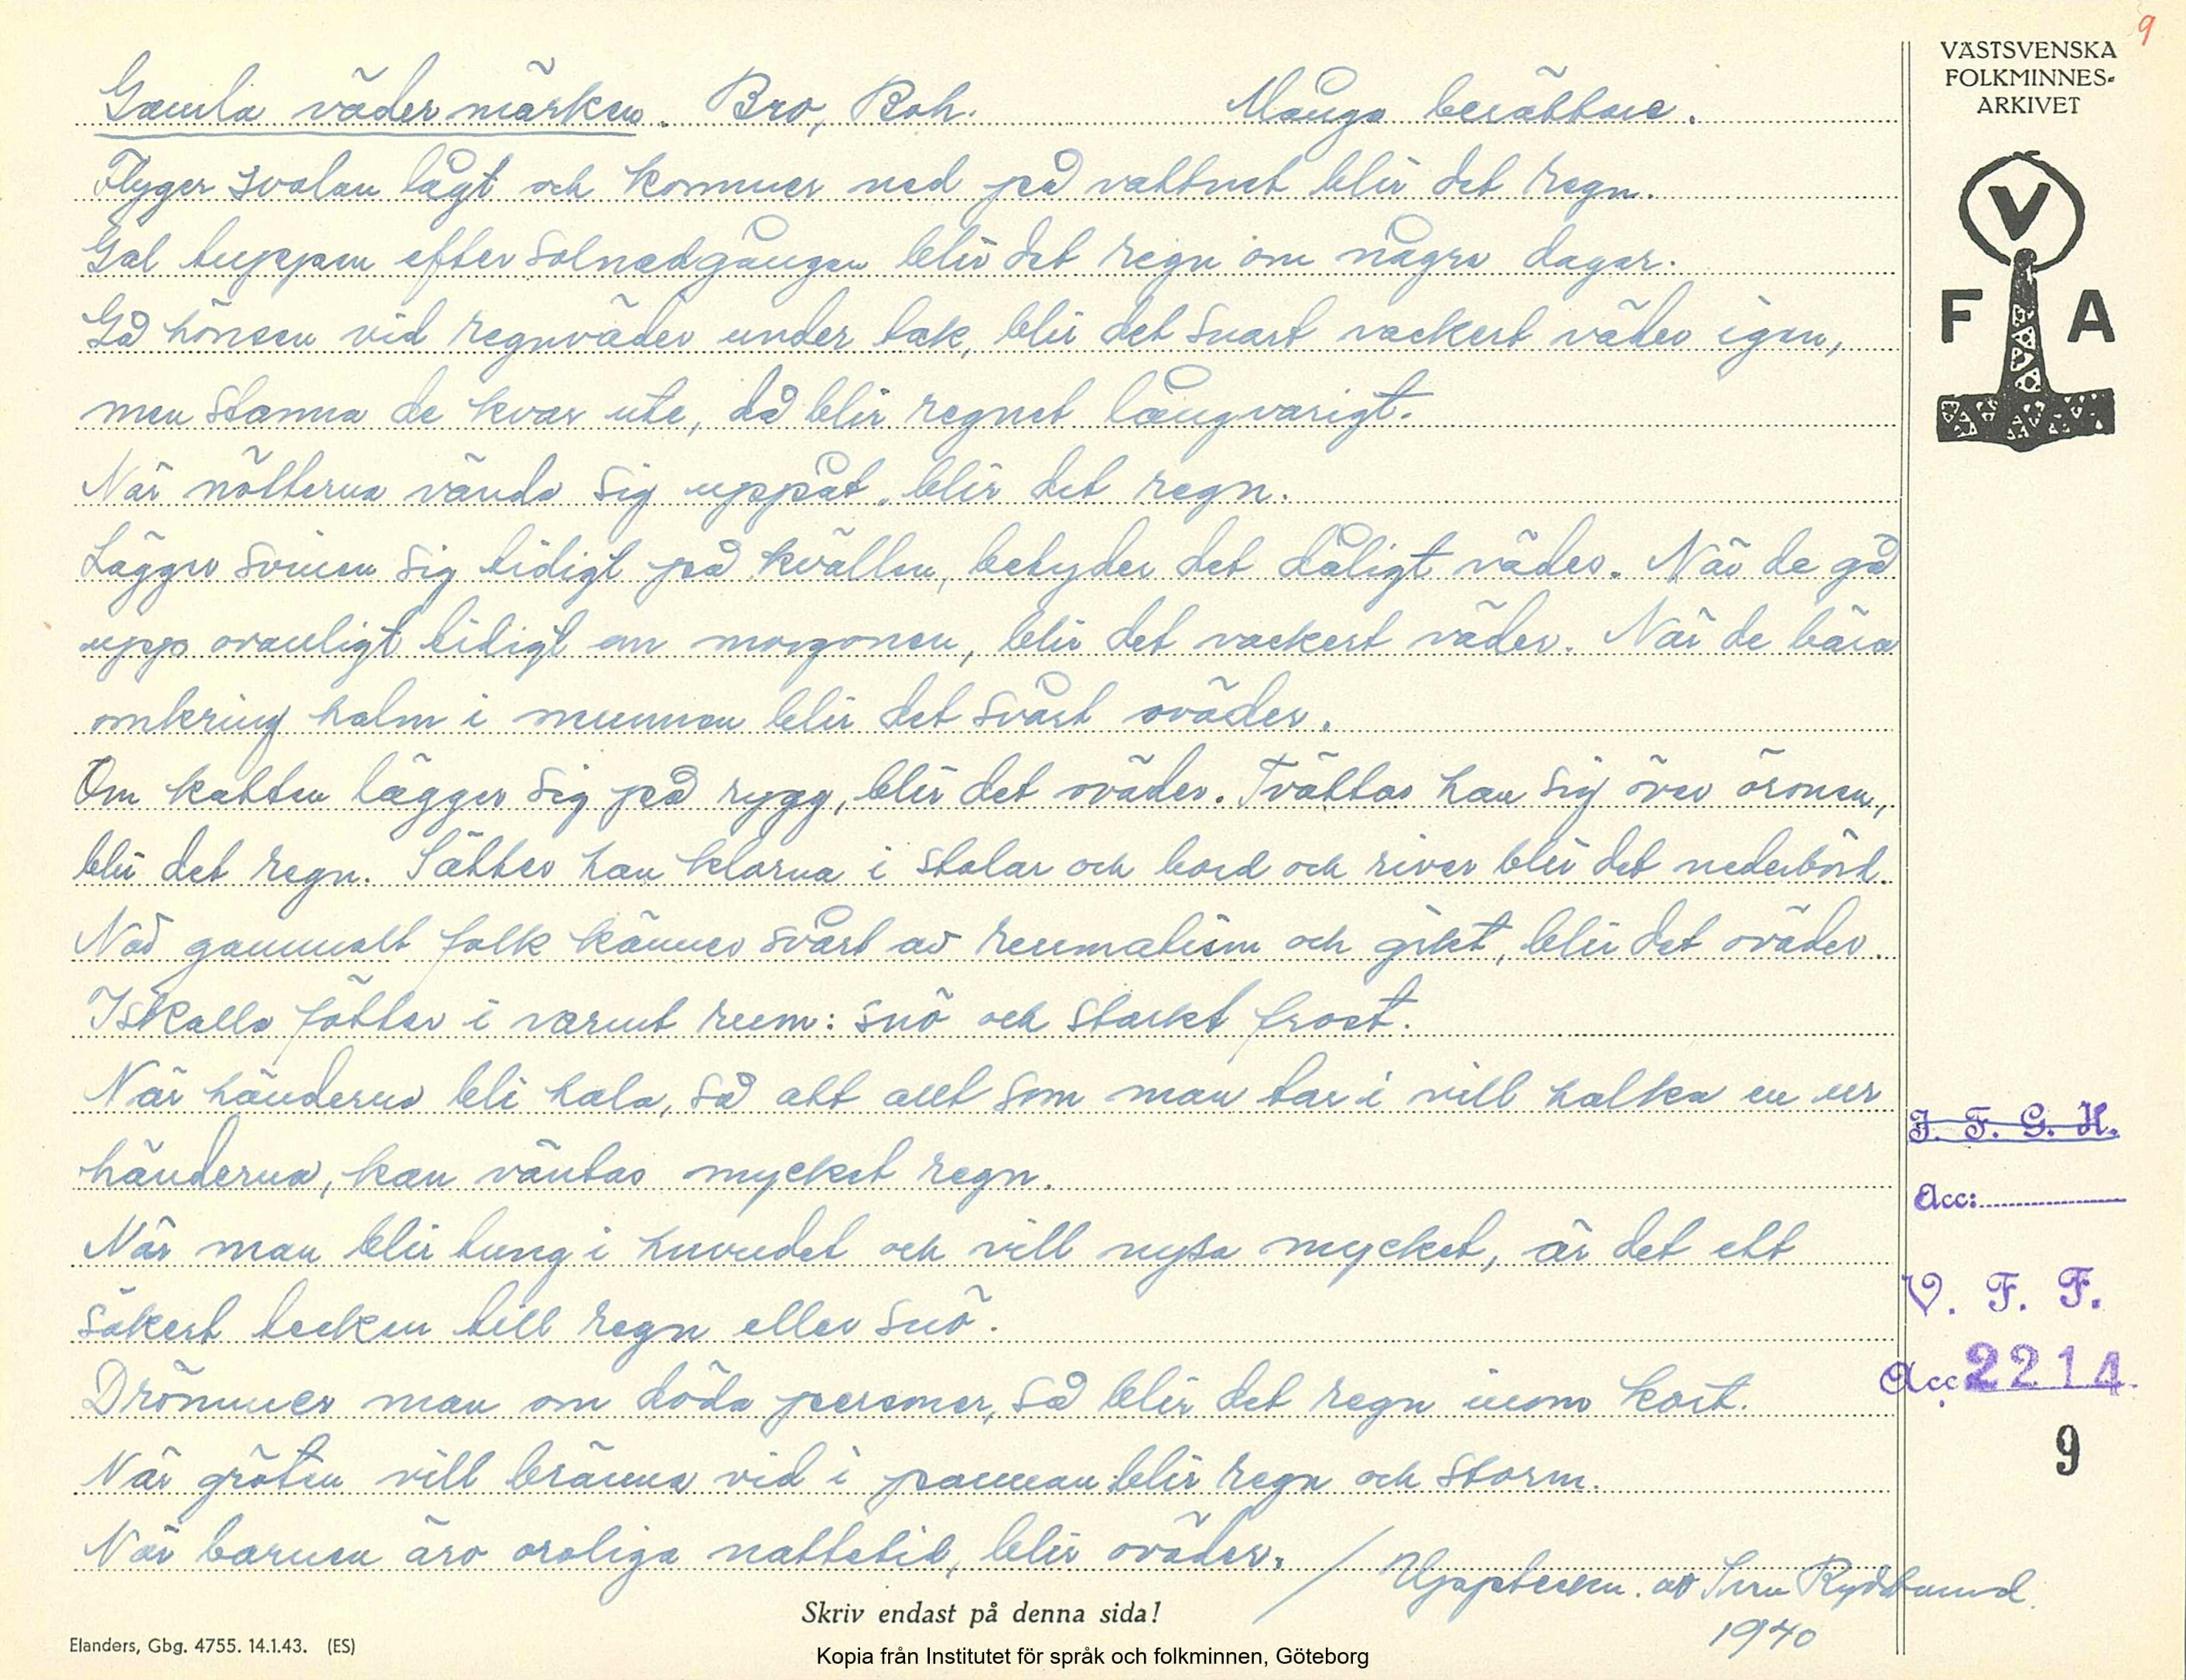 9
VÄSTSVENSKA
FOLKMINNES-
ARKIVET
V
F A
Gamla vädermärken. Bro, Boh. Många berättare.
Flyger svalan lågt och kommer ned på vattnet blir det regn.
Gal tuppen efter solnedgången blir det regn om några dagar.
Gå hönsen vid regnväder under tak, blir det snart vackert väder igen,
men stanna de kvar ute, då blir regnet långvarigt.
När nötterna vända sig uppåt, blir det regn.
Lägger svinen sig tidigt på kvällen, betyder det dåligt väder. När de gå
upp ovanligt tidigt om morgonen, blir det vackert väder. När de bära
omkring halm i munnen blir det svårt oväder.
Om katten lägger sig på rygg, blir det oväder. Tvättar han sig över öronen,
blir det regn. Sätter han klorna i stolar och bord och river blir det nederbörd.
När gammalt folk känner svårt av reumatism och gikt, blir det oväder.
Iskalla fötter i varmt rum: snö och starkt frost.
När händerna bli hala, så att allt som man tar i vill halka en ur
händerna, kan väntas mycket regn.
När man blir tung i huvudet och vill nysa mycket, är det ett
säkert tecken till regn eller snö.
Drömmer man om döda personer, så blir det regn inom kort.
När gröten vill bränna vid i pannan blir regn och storm.
När barnen äro oroliga nattetid, blir oväder. /
Uppteckn. av
1940
I. F. G. H.
Acc:
V. F. F.
Acc. 2214
9
Skriv endast på denna sida!
Elanders, Gbg. 4755. 14.1.43. (ES)
Kopia från Institutet för språk och folkminnen, Göteborg